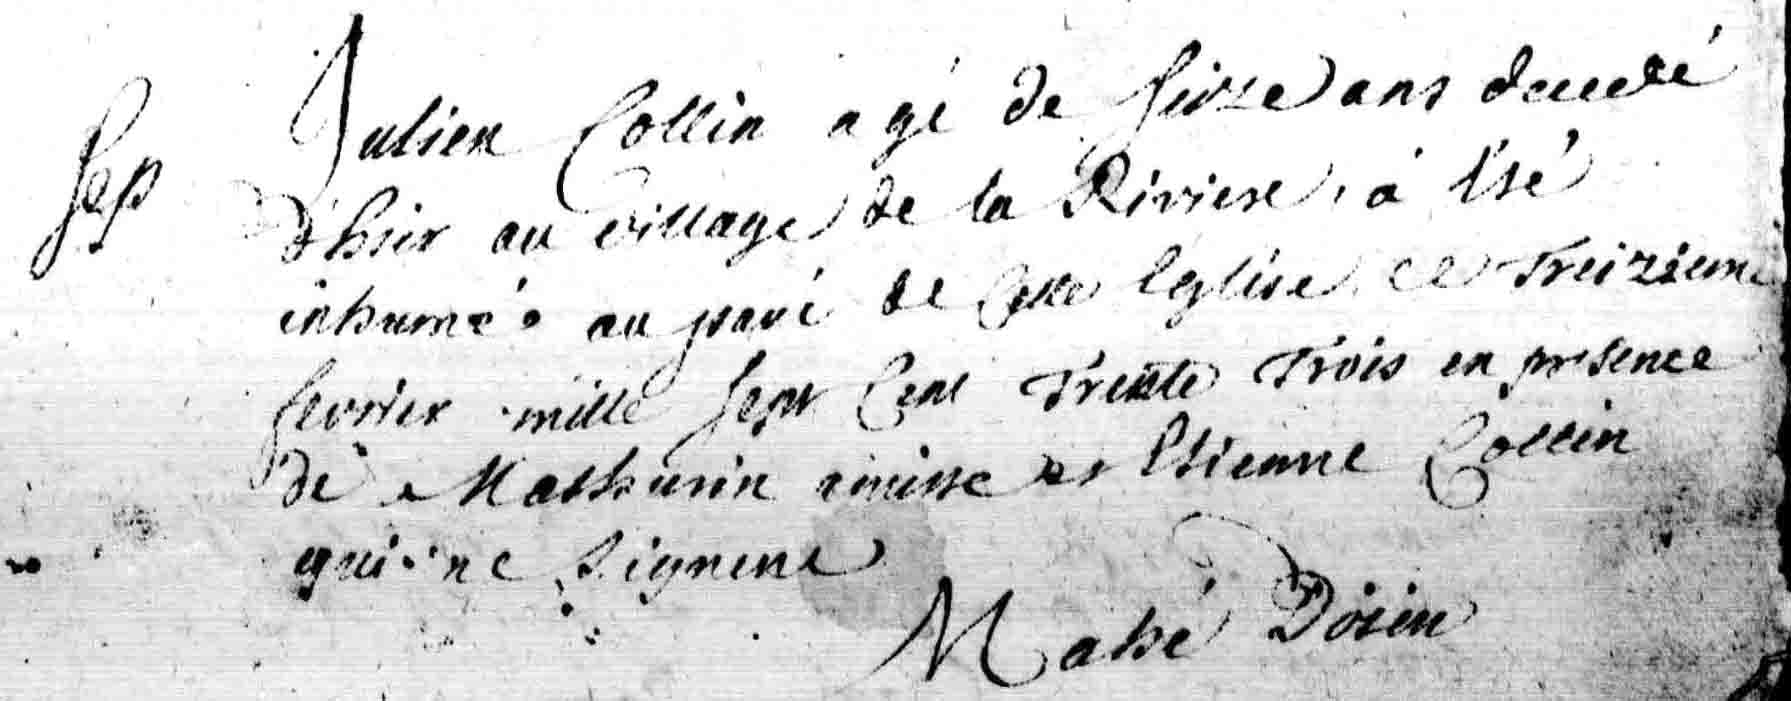 Sep
Julien Collin agé de seize ans decedé
d'hier au village de la Riviere, a esté
inhumé au pavé de cette Eglise ce Treizieme
fevrier mille sept Cent Trente Trois en presence
de Mathurin et Etienne Collin
qui ne signent
Mahé